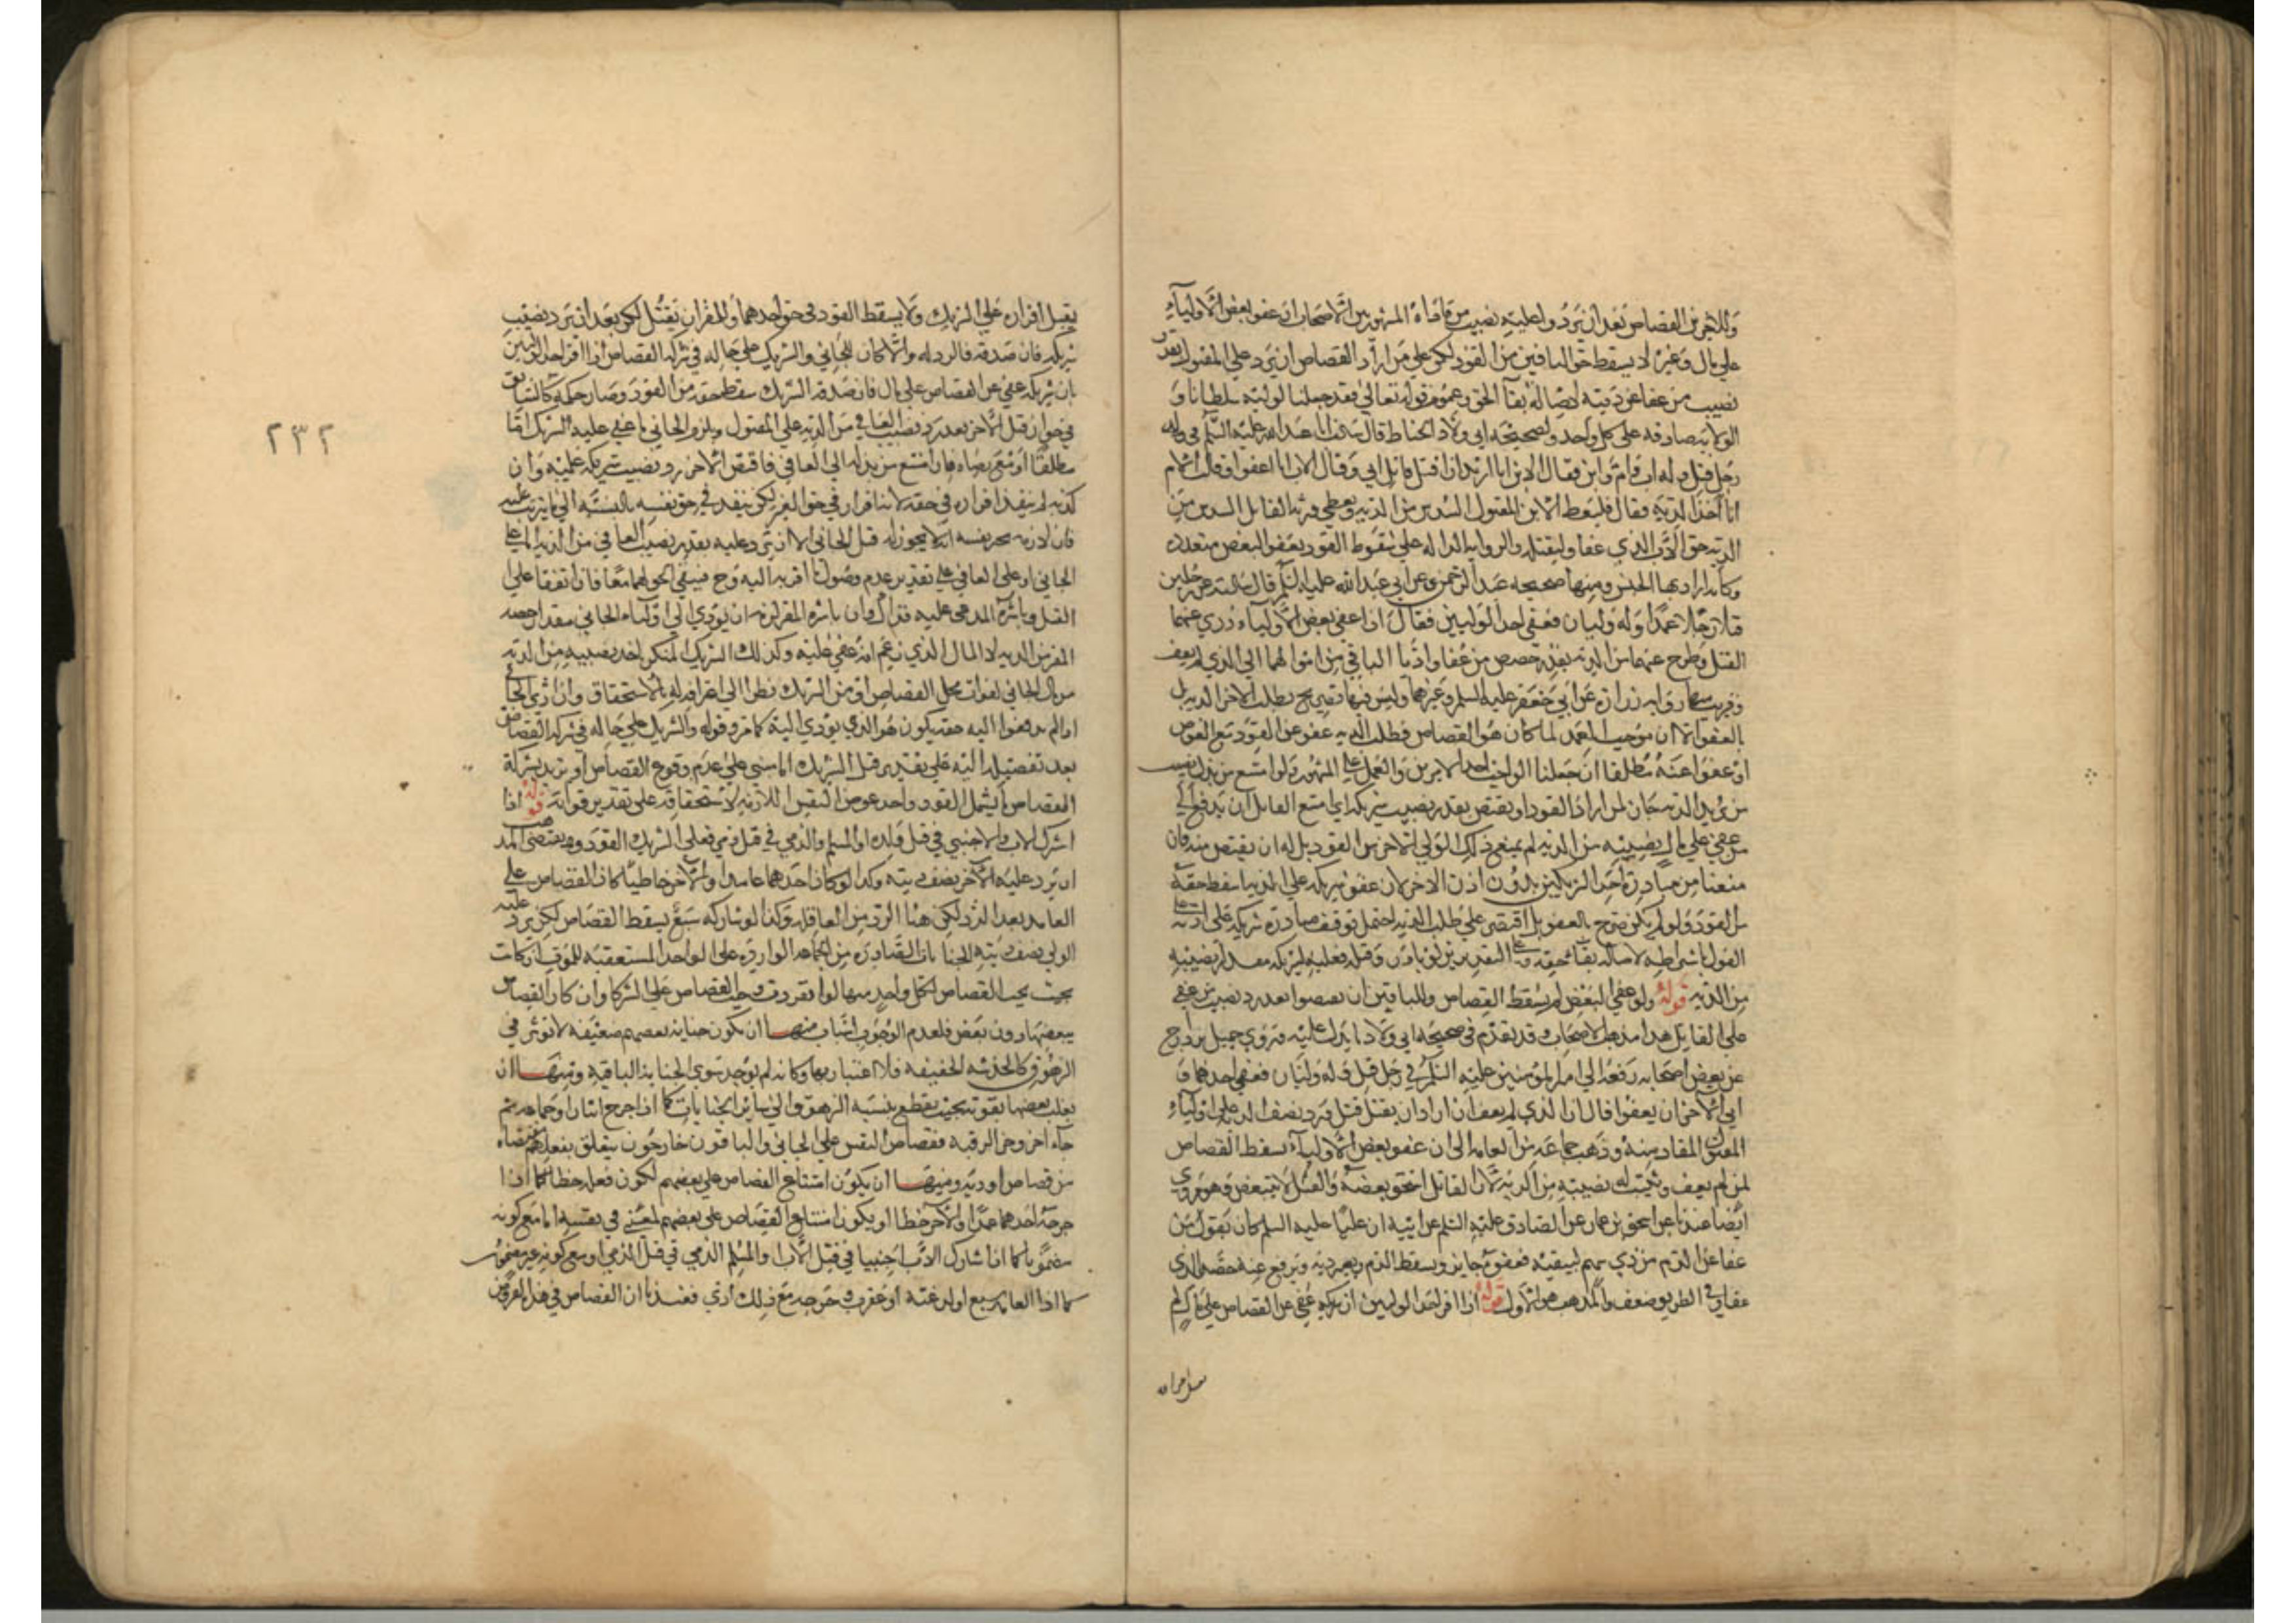 وللآخرين القصاص بعد أن يردوا عليه نصيب من فاداه المشهور بين الأصحاب ان عفو بعض الأولياء
على مال وغيره لا يسقط حق الباقين من القود لكن على من أراد القصاص ان يرد على المقول بقدر
نصيب من عفا عن ديته لاصالة بقآ الحق وعموم قوله تعالى فقد جعلنا لوليه سلطانا و
الولاية صادقة على كل واحد ولصحيحة ابي ولاد الحناط قال سالت ابا عبد الله عليه السلم في
رجل قتل وله اب وام وابن فقال الابن انا اريد ان اقتل قاتل ابي وقال الاب انا اعفو وقالت الام
انا آخذ الدية فقال فليعط الابن لام المقتول السدس من الدية ويعطي ورثة القاتل السدس من
الدية حق الأب الذي عفا وليقتله والروايات الدالة على سقوط القود بعفو البعض متعددة
وكانه اراد بها الجنس ومنها صحيحة عبد الرحمن عن ابي عبد الله عليه السلم قال سالته عن رجلين
قتلا رجلا عمدا وله وليان فعفى احد الوليين فقال اذا عفى بعض الأولياء درئ عنهما
القتل وطرح عنهما من الدية بقدر حصص من عفا وادّيا الباقي من اموالهما الى الذي لم يعف
وقريب منها رواية زرارة عن ابي جعفر عليه السلم وغيرهما وليس فيها تصريح بطلب الآخر الدية بل
بالعفو الا ان موجب العمد لما كان هو القصاص فطلب الدية عفو عن القود مع العوض
او عفوا عنه مطلقا ان جعلنا الواجب احد الامرين والعمل على المشهور ولو امتنع من بذل نصيب
من يريد الدية جاز لمن اراد القود ان يقتص بعد رد نصيب شريكه اي امتنع القاتل ان يدفع الى
من عفى على مال نصيبه من الدية لم يمنع ذلك الولي الآخر من القود بل له ان يقتص منه فان
منعنا من مبادرة احد الشريكين بدون اذن الاخر لان عفو شريكه على الدية اسقط حقه
من القود ولو لم يكن صرح بالعفو بل اقتصر على طلب الدية احتمل توقف مبادرة شريكه على اذنه
القول باشتراطه لاصالة بقآ حقه وعلى التقديرين لو بادر وقتله فعليه لشريكه مقدار نصيبه
من الدية قوله ولو عفى البعض لم يسقط القصاص وللباقين ان يقتصوا بعد رد نصيب من عفى
على القاتل هذا مذهب الاصحاب وقد تقدم في صحيحة ابي ولاد ما يدل عليه وروي جميل بن دراج
عن بعض اصحابه رفعه الى امير المؤمنين عليه السلم في رجل قتل وله وليان فعفى احدهما و
ابى الآخر ان يعفو قال ان الذي لم يعف ان اراد ان يقتل قتل ورد نصف الدية على اولياء
المقتول المقاد منه وذهب جماعة من العامة الى ان عفو بعض الأولياء يسقط القصاص
لمن لم يعف ويثبت له نصيبه من الدية لأن القاتل احق بعضه والقتل لا يتبعض وهو مروي
ايضا عندنا عن اسحق بن عمار عن الصادق عليه السلم عن ابيه ان عليا عليه السلم كان يقول من
عفا عن الدم من ذي سهم له فيه فعفوه جايز ويسقط الدم ويصير دية ويرفع عنه حصة الذي
عفا وفي الطريق ضعف والمذهب هو الأول قوله اذا اقر احد الوليين ان شريكه عفى عن القصاص على مال لم
يقبل اقراره على الشريك ولا يسقط القود في حق احدهما وللمقر ان يقتل لكن بعد ان يرد نصيب
شريكه فان صدقه فالرد له والا كان للجاني والشريك على حاله في شركة القصاص اذا اقر احد الوليين
بان شريكه عفى عن القصاص على مال فان صدقه الشريك سقط حقه من القود وصار حكمه كالسابق
في جواز قتل الآخر بعد رد نصيب العافي من الدية على المقتول ويلزم الجاني ما عفى عليه الشريك اما
مطلقا او مع رضاه فان امتنع من بذله الى العافي فاقتص الآخر رد نصيب شريكه عليه وان
كذبه لم ينفذ اقراره في حقه لانه اقرار في حق الغير لكن ينفذ في حق نفسه بالنسبة الى ما يترتب عليه
الجاني او على العافي على تقدير عدم وصول ما اقر به اليه وح فيبقى الحق لهما معا فان اتفقا على
القتل وباشره المدعى عليه فذاك وان باشره المقر لزمه ان يؤدي الى اولياء الجاني مقدار حصة
المقر من الدية لا المال الذي زعم انه عفى عليه وكذلك الشريك المنكر اخذ نصيبه من الدية
من مال الجاني لفوات محل القصاص او من الشريك نظرا الى اعترافه له بالاستحقاق وان ادى الجاني
او لم يدفعوا اليه حقه يكون هو الذي يؤدي اليه كما مر وقوله والشريك على حاله في شركة القصاص
بعد تفصيله الدية على تقدير قتل الشريك اما مبني على عدم وقوع القصاص او يريد بشركة
القصاص ما يشمل القود واخذ عوض النفس اللازمة لاستحقاقه على تقدير فواته قوله اذا
اشترك الاب والاجنبي في قتل ولده او المسلم والذمي في قتل ذمي فعلى الشريك القود ويقتضى المذهب
ان يرد عليه الآخر نصف ديته وكذا لو كان احدهما عامدا والآخر خاطئا كان القصاص على
العامد بعد الرد لكن هنا الرد من العاقلة وكذا لو شاركه سبع لم يسقط القصاص لكن يرد عليه
الولي نصف ديته الجنايات الصادرة من الجماعة الواردة على الواحد المستعقبة للموت ان كانت
بحيث يجب القصاص بكل واحد منها لو انفردت وجب القصاص على الشركا وان كان القصاص
ببعضها دون بعض فلعدم الوجوب اسباب منها ان يكون جناية بعضهم ضعيفة لا تؤثر في
الزهوق كالخدشة الخفيفة فلا اعتبار بها وكانه لم يوجد سوى الجناية الباقية ومنها ان
يغلب بعضها بقوته بحيث يقطع بنسبة الزهوق الى ساير الجنايات كما اذا جرح اثنان او جماعة ثم
جاء اخر وحز الرقبة فقصاص النفس على الجاني والباقون خارجون يتعلق بفعلهم مقتضاه
من قصاص او دية ومنها ان يكون امتناع القصاص على بعضهم لكون فعله خطا كما اذا
جرحه احدهما عمدا والآخر خطا او يكون امتناع القصاص على بعضهم لمعنى في نفسه اما مع كونه
مضمونا كما اذا شارك الأب اجنبيا في قتل الأب والمسلم الذمي في قتل الذمي او مع كونه غير مضمون
كما اذا العامد سبع او لدغته او عقرب وجرحه مع ذلك آدمي فعندنا ان القصاص في هذه الفروض
٢٣٢